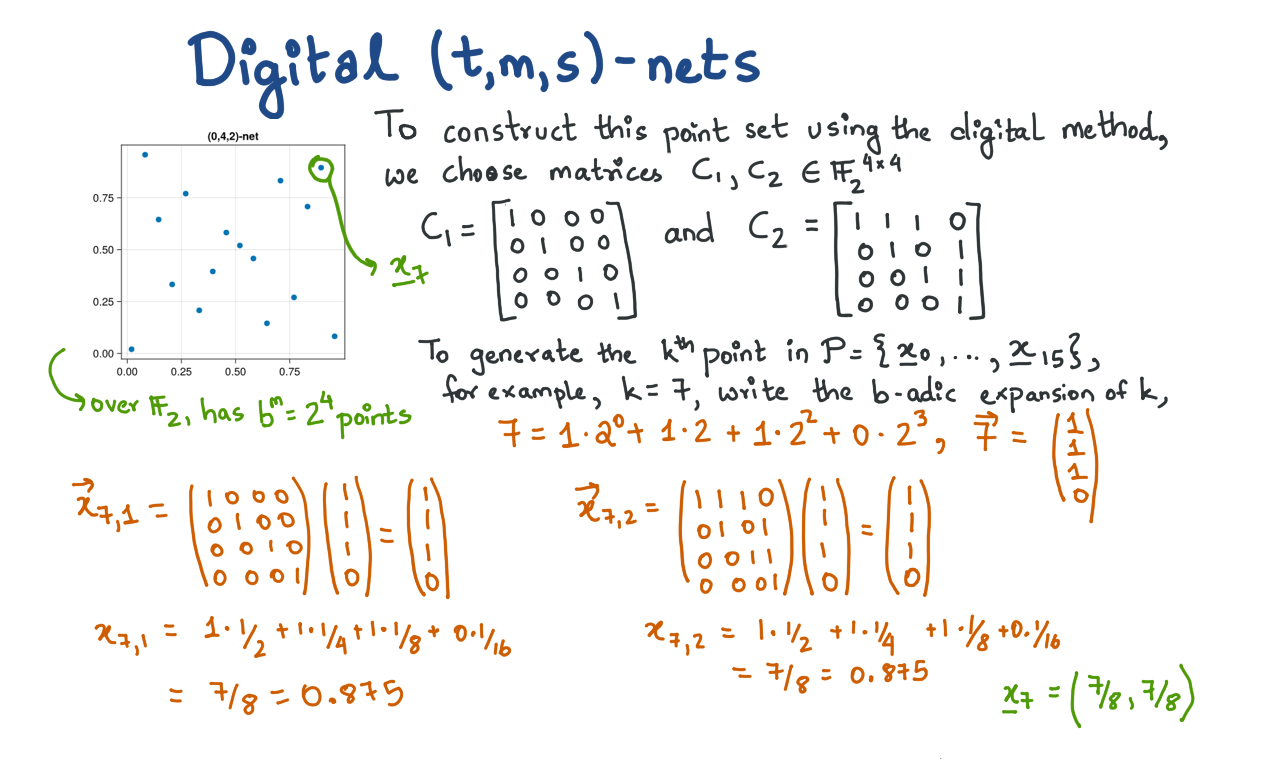 Digital (t,m,s)-nets
(0,4,2)-net
0.75
0.50
0.25
0.00
0.00 0.25 0.50 0.75
x₇
over 𝔽₂, has bᵐ = 2⁴ points
To construct this point set using the digital method,
we choose matrices C₁, C₂ ∈ 𝔽₂^{4×4}
C₁ = [1 0 0 0; 0 1 0 0; 0 0 1 0; 0 0 0 1] and C₂ = [1 1 1 0; 0 1 0 1; 0 0 1 1; 0 0 0 1]
To generate the kᵗʰ point in P = {x₀, ..., x₁₅},
for example, k = 7, write the b-adic expansion of k,
7 = 1·2⁰ + 1·2 + 1·2² + 0·2³, 7⃗ = (1; 1; 1; 0)
x⃗₇,₁ = (1 0 0 0; 0 1 0 0; 0 0 1 0; 0 0 0 1) (1; 1; 1; 0) = (1; 1; 1; 0)
x₇,₁ = 1·1/2 + 1·1/4 + 1·1/8 + 0·1/16
= 7/8 = 0.875
x⃗₇,₂ = (1 1 1 0; 0 1 0 1; 0 0 1 1; 0 0 0 1) (1; 1; 1; 0) = (1; 1; 1; 0)
x₇,₂ = 1·1/2 + 1·1/4 + 1·1/8 + 0·1/16
= 7/8 = 0.875
x₇ = (7/8, 7/8)